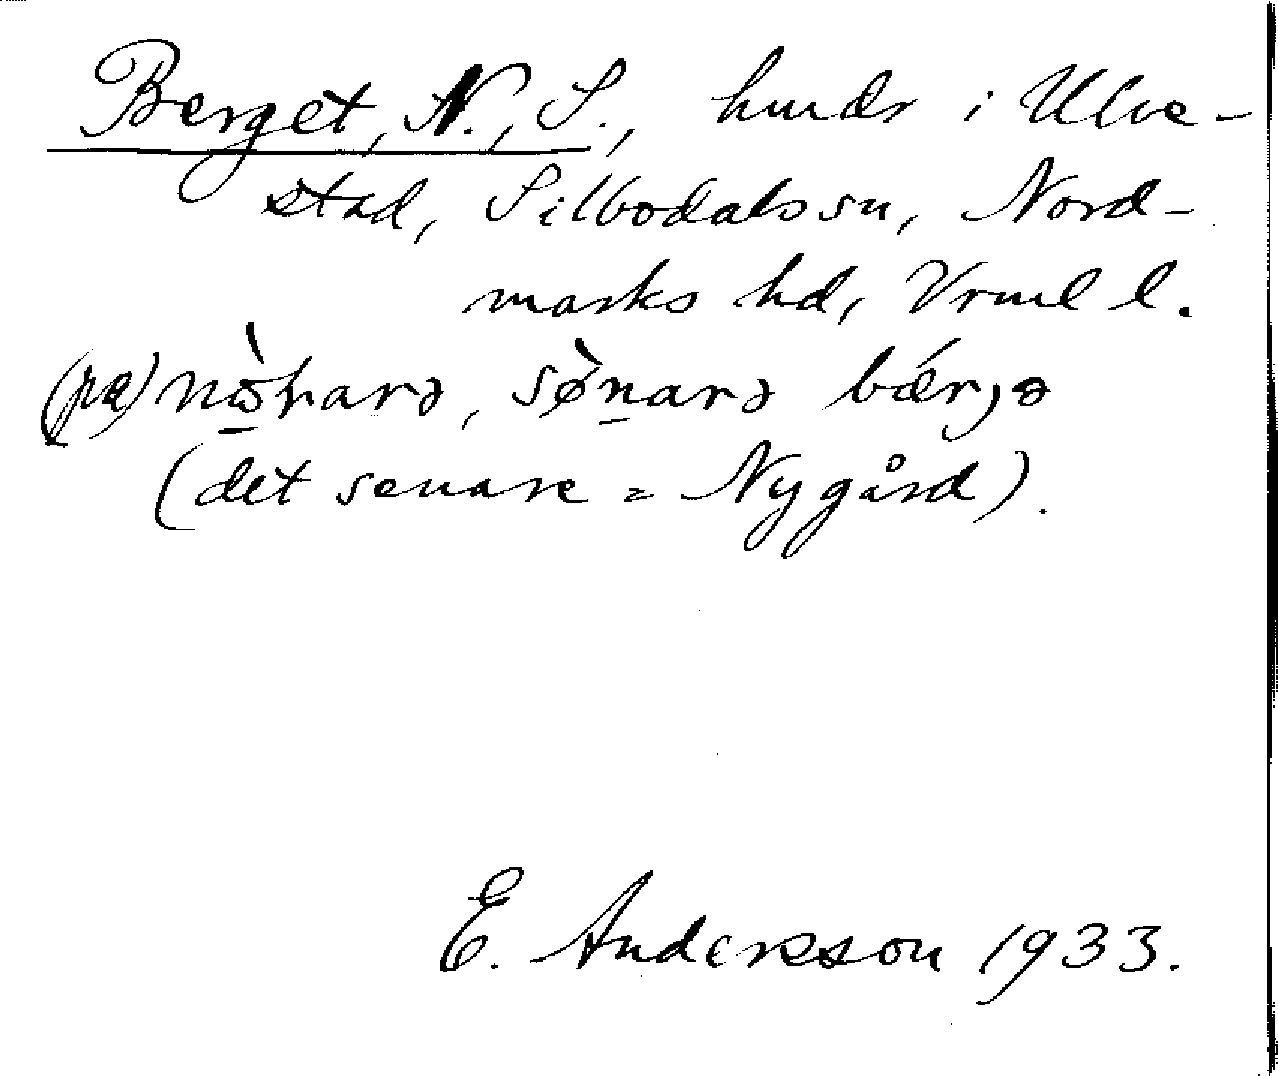 Berget, N., S., hmdr i Ulve-
stad, Silbodals sn, Nord-
marks hd, Vrml l.
(pæ) nò̱rarə, sø̀ṉarə bǽrjə
(det senare = Nygård).
E. Andersson 1933.